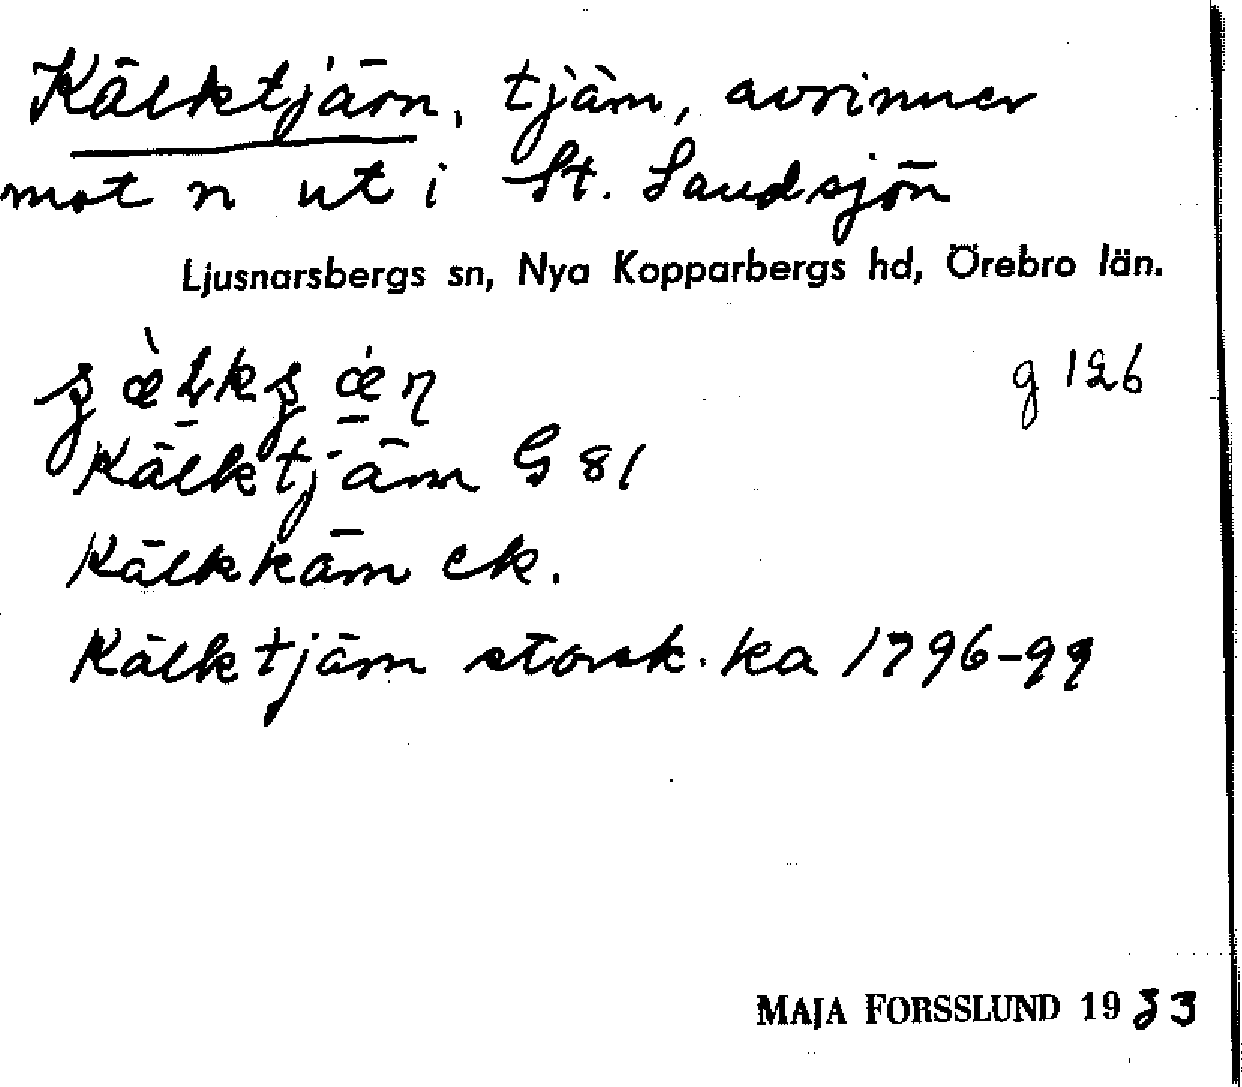 Kälktjärn, tjärn, avrinner
mot n ut i St. Sandsjön
Ljusnarsbergs sn, Nya Kopparbergs hd, Örebro län.
g 126
Kälktjärn G 81
Kälkkärn ek.
Kälktjärn storsk. ka 1796-99
MAJA FORSSLUND 1933